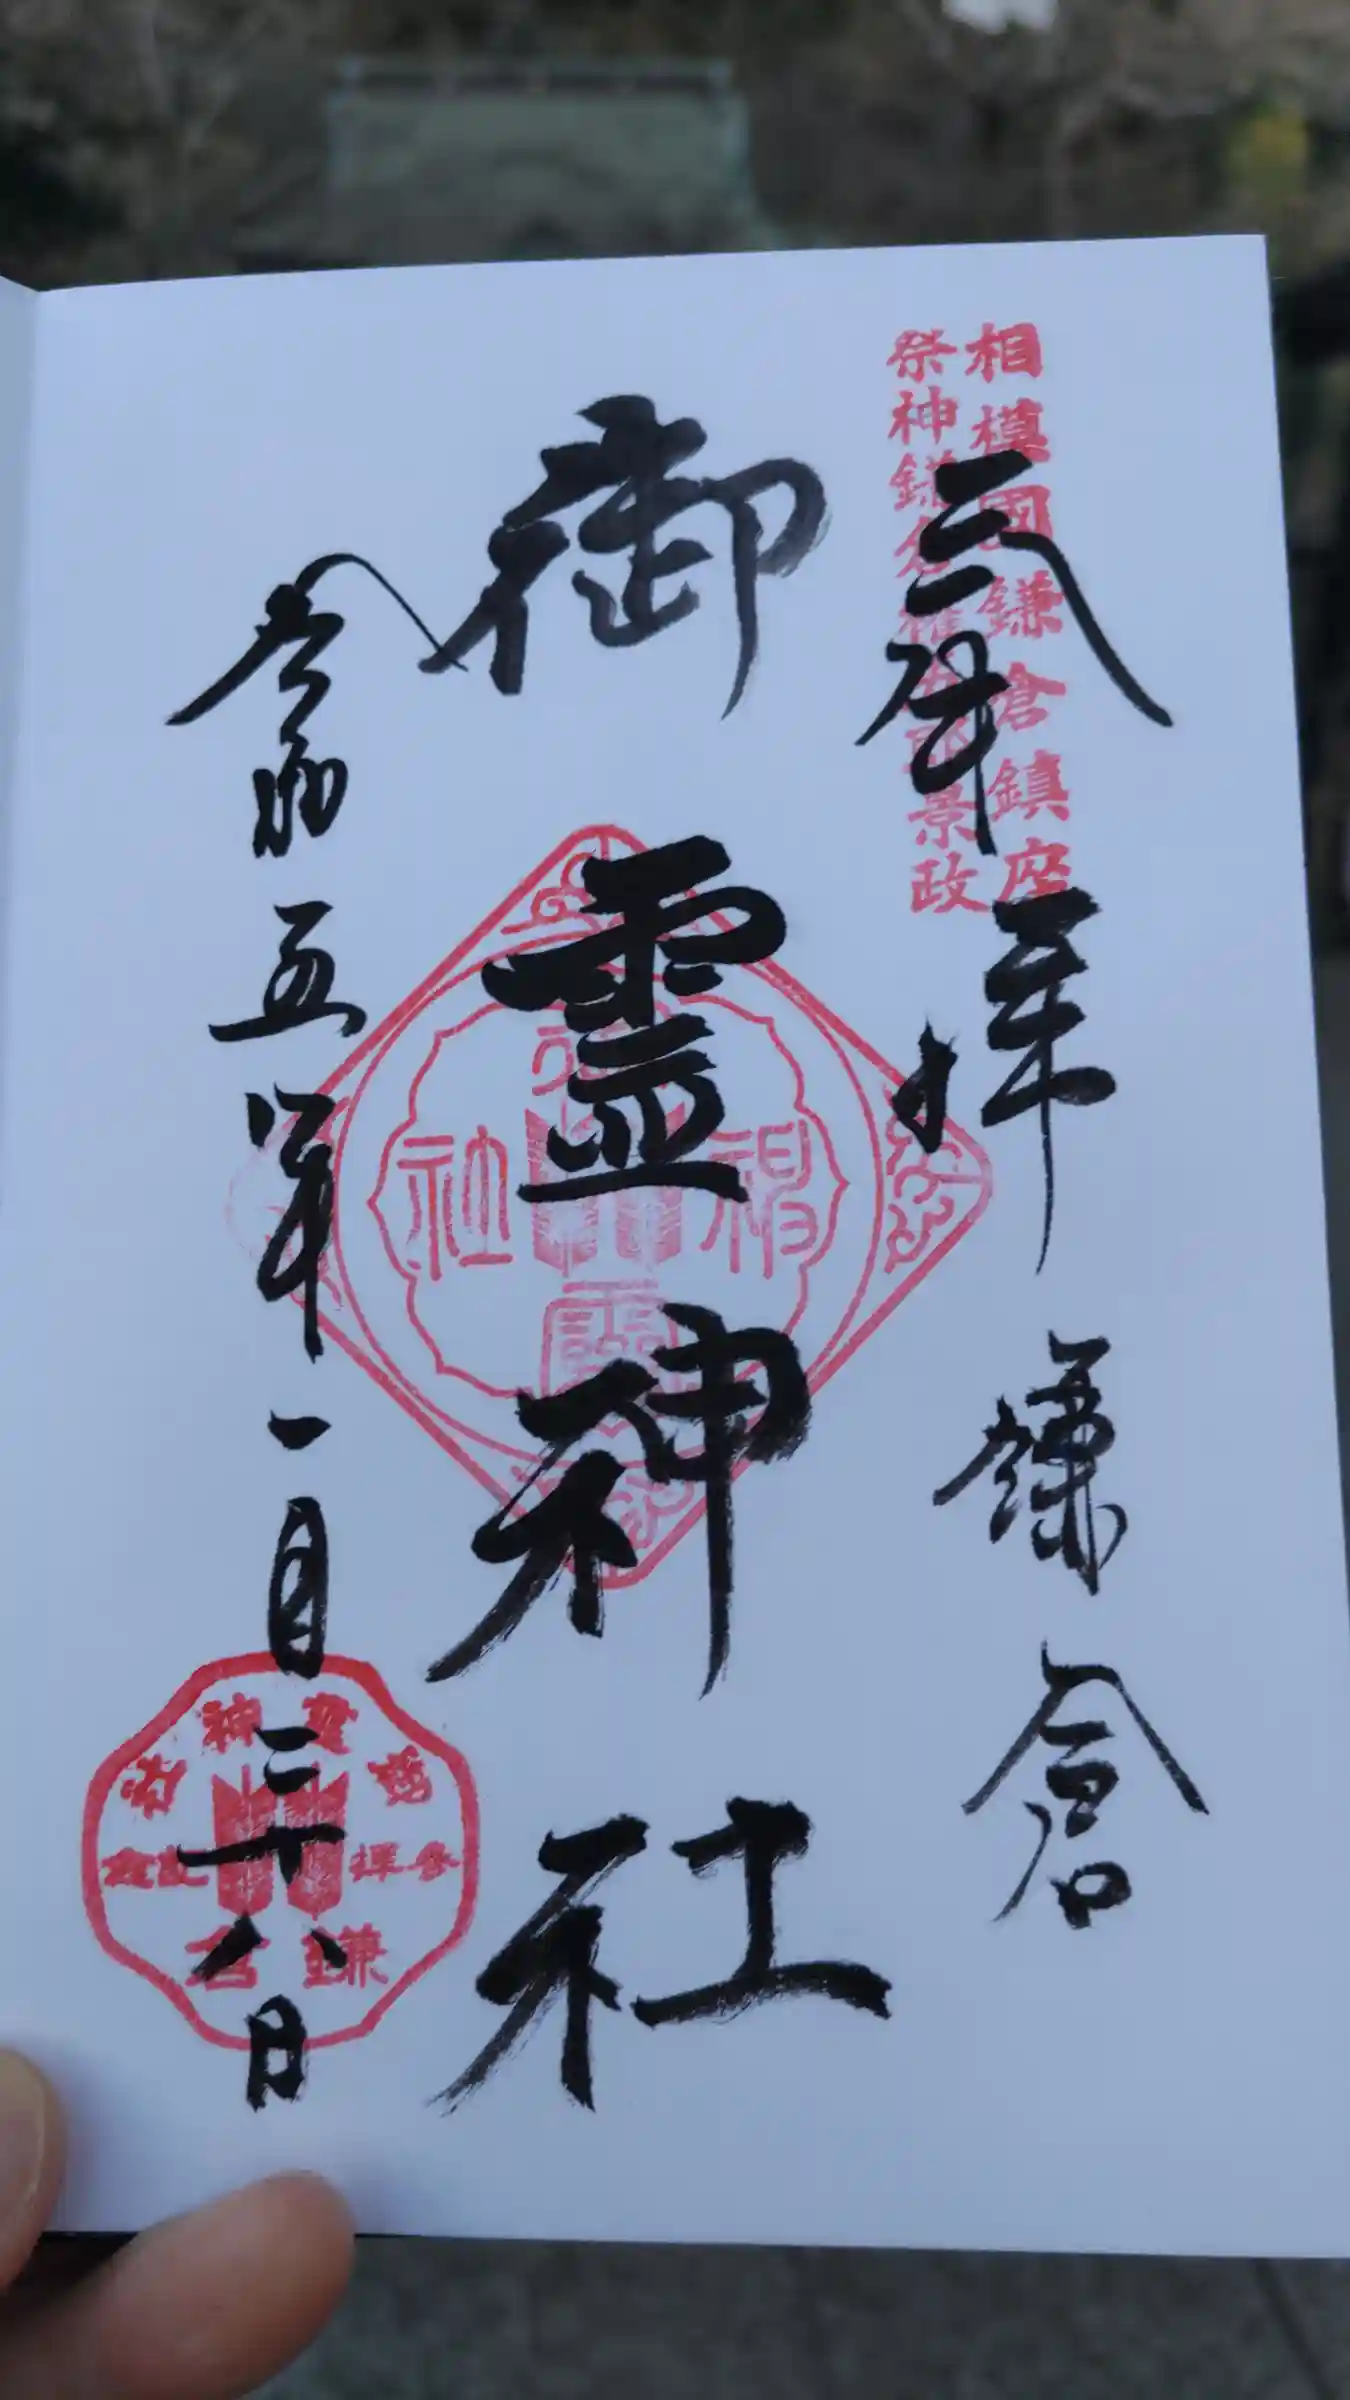 相模國鎌倉鎮座
祭神鎌倉権五郎景政
奉拝 鎌倉
御霊神社
令和五年一月二十八日
鎌倉